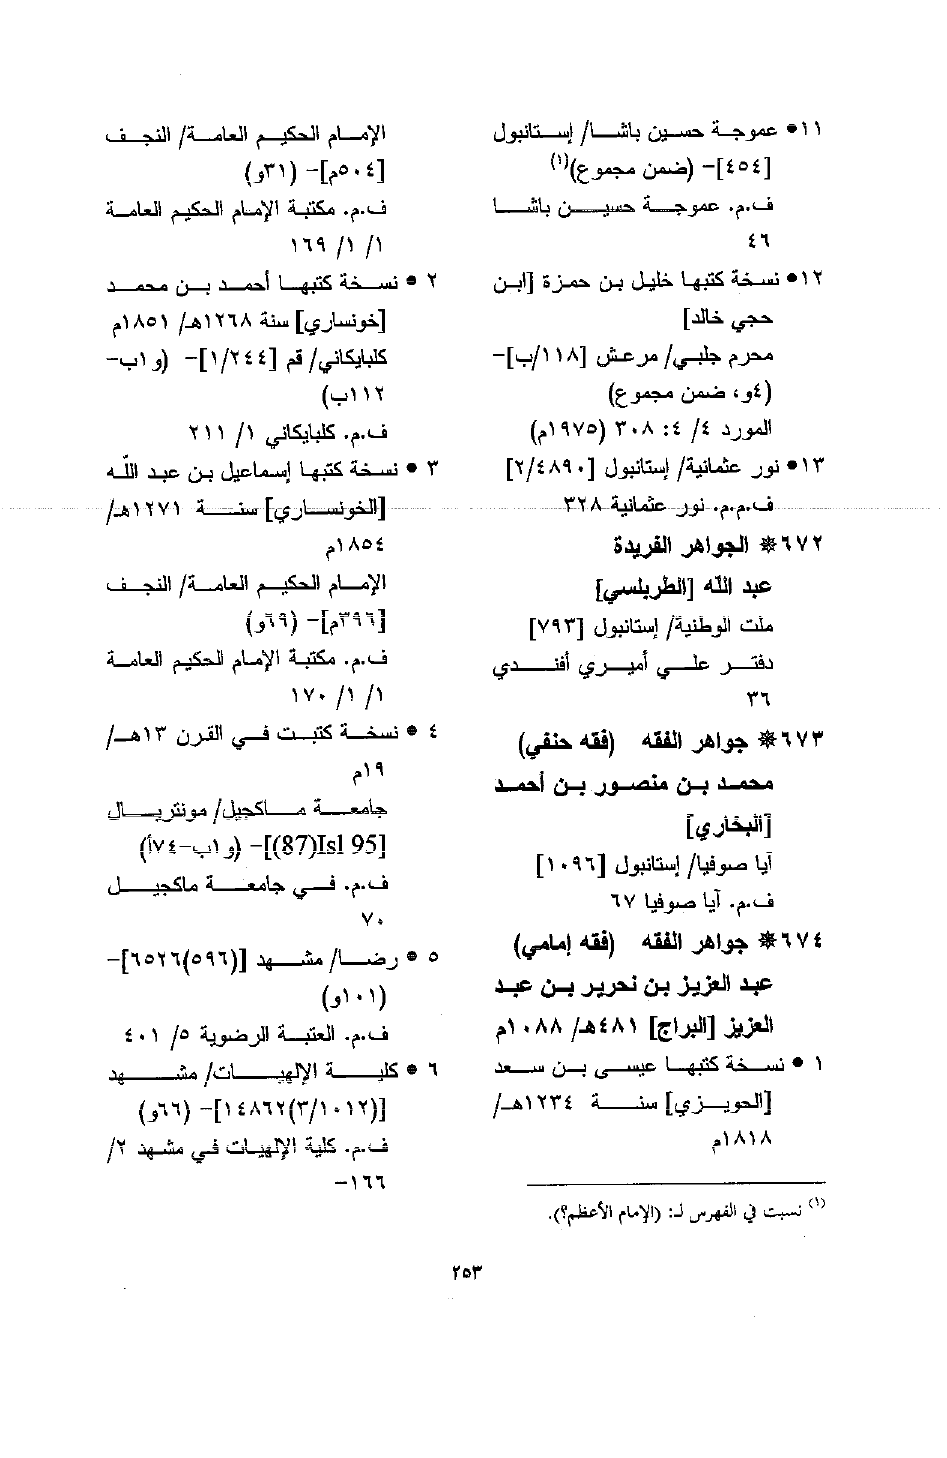 ١١• عموجة حسين باشا/ إستانبول
[٤٥٤]- (ضمن مجموع)(١)
ف.م. عموجة حسين باشا
٤٦
١٢• نسخة كتبها خليل بن حمزة [ابن
حجي خالد]
محرم جلبي/ مرعش [١١٨/ب]-
(٤و، ضمن مجموع)
المورد ٤/ ٤: ٣٠٨ (١٩٧٥م)
١٣• نور عثمانية/ إستانبول [٢/٤٨٩٠]
ف.م.م. نور عثمانية ٣٢٨
٦٧٢* الجواهر الفريدة
عبد الله [الطربلسي]
ملت الوطنية/ إستانبول [٧٩٣]
دفتر علي أميري أفندي
٣٦
٦٧٣* جواهر الفقه (فقه حنفي)
محمد بن منصور بن أحمد
[البخاري]
آيا صوفيا/ إستانبول [١٠٩٦]
ف.م. آيا صوفيا ٦٧
٦٧٤* جواهر الفقه (فقه إمامي)
عبد العزيز بن نحرير بن عبد
العزيز [البراج] ٤٨١هـ/ ١٠٨٨م
١ • نسخة كتبها عيسى بن سعد
[الحويزي] سنة ١٢٣٤هـ/
١٨١٨م
(١) نسبت في الفهرس لـ: (الإمام الأعظم؟).
الإمام الحكيم العامة/ النجف
[٥٠٤م]- (٣١و)
ف.م. مكتبة الإمام الحكيم العامة
١/ ١/ ١٦٩
٢ • نسخة كتبها أحمد بن محمد
[خونساري] سنة ١٢٦٨هـ/ ١٨٥١م
كلبايكاني/ قم [١/٢٤٤]- (و١ب-
١١٢ب)
ف.م. كلبايكاني ١/ ٢١١
٣ • نسخة كتبها إسماعيل بن عبد اللّه
[الخونساري] سنة ١٢٧١هـ/
١٨٥٤م
الإمام الحكيم العامة/ النجف
[٣٩٦م]- (٦٩و)
ف.م. مكتبة الإمام الحكيم العامة
١/ ١/ ١٧٠
٤ • نسخة كتبت في القرن ١٣هـ/
١٩م
جامعة ماكجيل/ مونتريال
[(87)Isl 95]- (و١ب-٧٤أ)
ف.م. في جامعة ماكجيل
٧٠
٥ • رضا/ مشهد [(٥٩٦)٦٥٢٦]-
(١٠١و)
ف.م. العتبة الرضوية ٥/ ٤٠١
٦ • كلية الإلهيات/ مشهد
[(٣/١٠١٢)١٤٨٦٢]- (٦٦و)
ف.م. كلية الإلهيات في مشهد ٢/
١٦٦-
٢٥٣